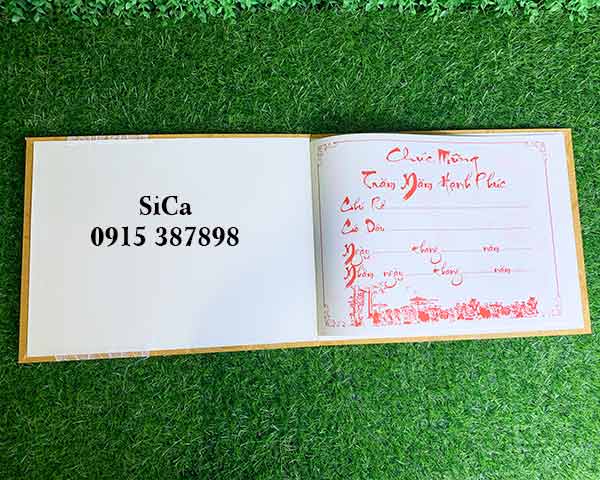 SiCa
0915 387898
Chúc Mừng
Trăm Năm Hạnh Phúc
Chú Rể
Cô Dâu
Ngày tháng năm
Nhằm ngày tháng năm